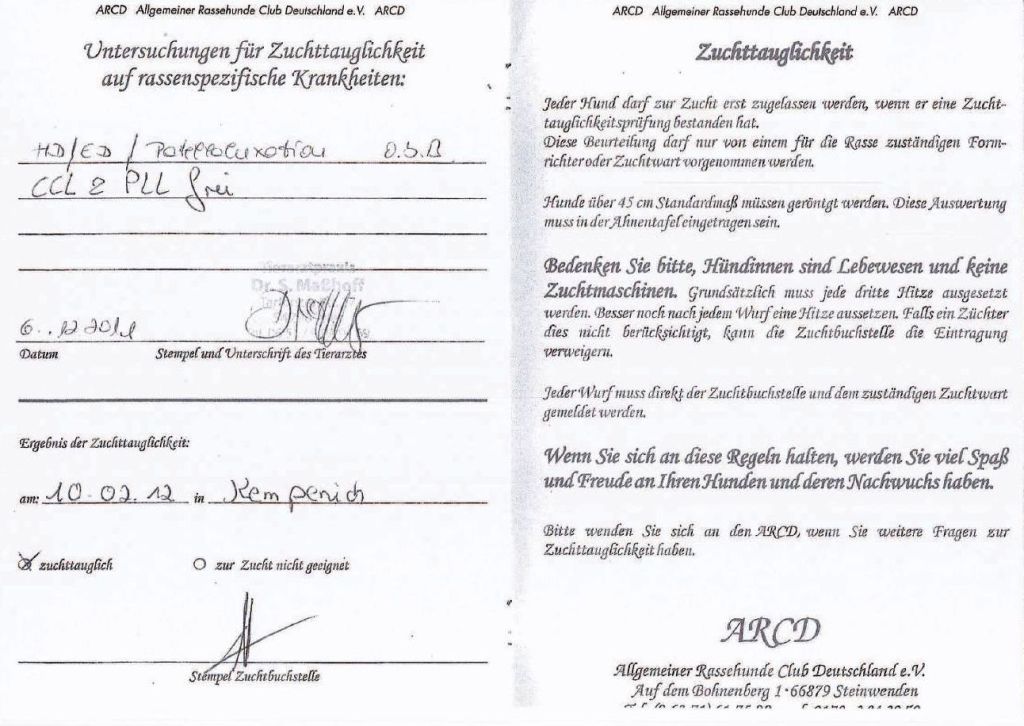 ARCD Allgemeiner Rassehunde Club Deutschland e.V. ARCD
Untersuchungen für Zuchttauglichkeit
auf rassenspezifische Krankheiten:
HD/ED / Patellaluxation O.B.B
CCL & PLL frei
Dr. S. Maßhoff
6.12.2011
Datum Stempel und Unterschrift des Tierarztes
Ergebnis der Zuchttauglichkeit:
am: 10.02.12 in Kempenich
zuchttauglich zur Zucht nicht geeignet
Stempel Zuchtbuchstelle
ARCD Allgemeiner Rassehunde Club Deutschland e.V. ARCD
Zuchttauglichkeit
Jeder Hund darf zur Zucht erst zugelassen werden, wenn er eine Zucht-
tauglichkeitsprüfung bestanden hat.
Diese Beurteilung darf nur von einem für die Rasse zuständigen Form-
richter oder Zuchtwart vorgenommen werden.
Hunde über 45 cm Standardmaß müssen geröntgt werden. Diese Auswertung
muss in der Ahnentafel eingetragen sein.
Bedenken Sie bitte, Hündinnen sind Lebewesen und keine
Zuchtmaschinen. Grundsätzlich muss jede dritte Hitze ausgesetzt
werden. Besser noch nach jedem Wurf eine Hitze aussetzen. Falls ein Züchter
dies nicht berücksichtigt, kann die Zuchtbuchstelle die Eintragung
verweigern.
Jeder Wurf muss direkt der Zuchtbuchstelle und dem zuständigen Zuchtwart
gemeldet werden.
Wenn Sie sich an diese Regeln halten, werden Sie viel Spaß
und Freude an Ihren Hunden und deren Nachwuchs haben.
Bitte wenden Sie sich an den ARCD, wenn Sie weitere Fragen zur
Zuchttauglichkeit haben.
ARCD
Allgemeiner Rassehunde Club Deutschland e.V.
Auf dem Bohnenberg 1 · 66879 Steinwenden